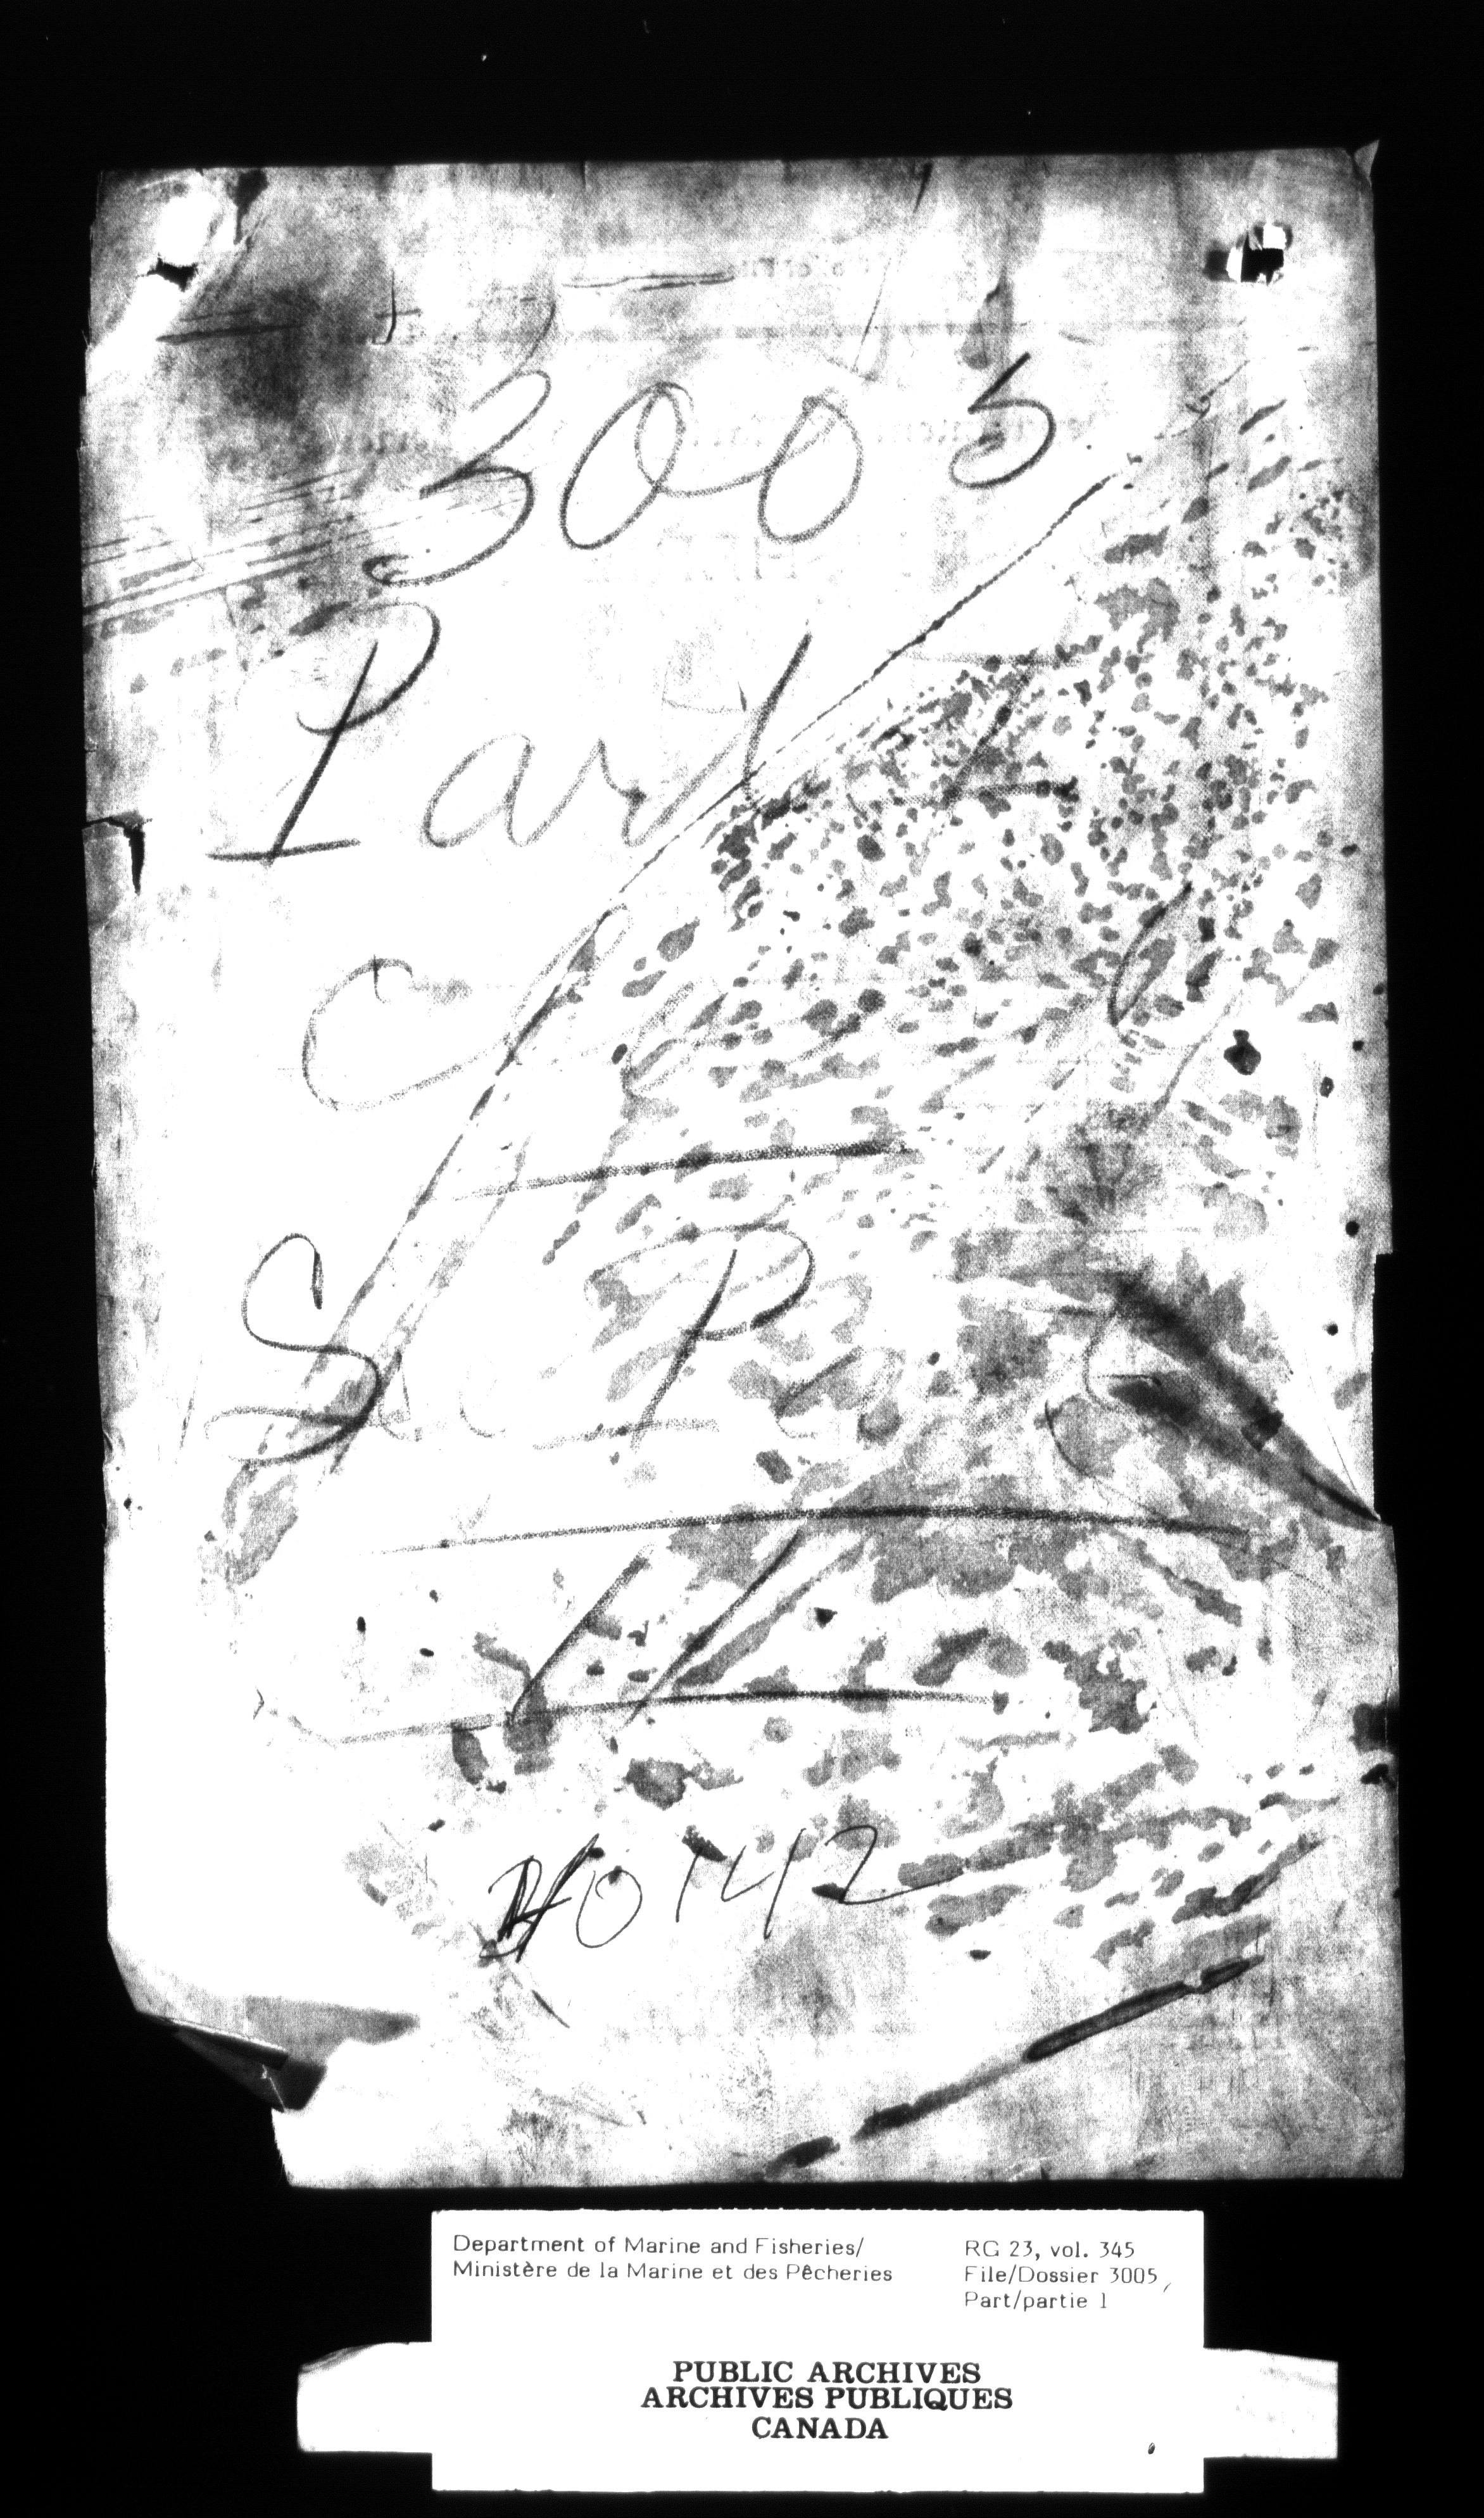 3005
Part 1
Cl
See P
11
40142
Department of Marine and Fisheries/
Ministère de la Marine et des Pêcheries
RG 23, vol. 345
File/Dossier 3005,
Part/partie 1
PUBLIC ARCHIVES
ARCHIVES PUBLIQUES
CANADA